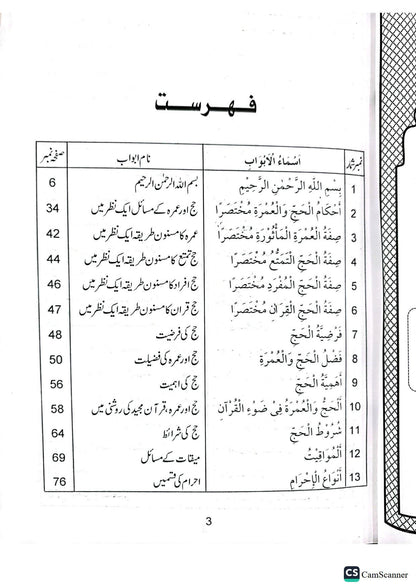 فہرست
نمبر شمار اَسْمَاءُ الْاَبْوَابِ نام ابواب صفحہ نمبر
1 بِسْمِ اللّٰهِ الرَّحْمٰنِ الرَّحِيْمِ بسم اللہ الرحمٰن الرحیم 6
2 اَحْكَامُ الْحَجِّ وَالْعُمْرَةِ مُخْتَصَرًا حج اور عمرہ کے مسائل ایک نظر میں 34
3 صِفَةُ الْعُمْرَةِ الْمَأْثُوْرَةِ مُخْتَصَرًا عمرہ کا مسنون طریقہ ایک نظر میں 42
4 صِفَةُ الْحَجِّ التَّمَتُّعِ مُخْتَصَرًا حج تمتع کا مسنون طریقہ ایک نظر میں 44
5 صِفَةُ الْحَجِّ الْمُفْرَدِ مُخْتَصَرًا حج افراد کا مسنون طریقہ ایک نظر میں 46
6 صِفَةُ الْحَجِّ الْقِرَانِ مُخْتَصَرًا حج قران کا مسنون طریقہ ایک نظر میں 47
7 فَرْضِيَّةُ الْحَجِّ حج کی فرضیت 48
8 فَضْلُ الْحَجِّ وَالْعُمْرَةِ حج اور عمرہ کی فضیلت 50
9 اَهَمِيَّةُ الْحَجِّ حج کی اہمیت 56
10 اَلْحَجُّ وَالْعُمْرَةُ فِىْ ضَوْءِ الْقُرْآنِ حج اور عمرہ، قرآن مجید کی روشنی میں 58
11 شُرُوْطُ الْحَجِّ حج کی شرائط 64
12 اَلْمَوَاقِيْتُ میقات کے مسائل 69
13 اَنْوَاعُ الْاِحْرَامِ احرام کی قسمیں 76
3
CS CamScanner